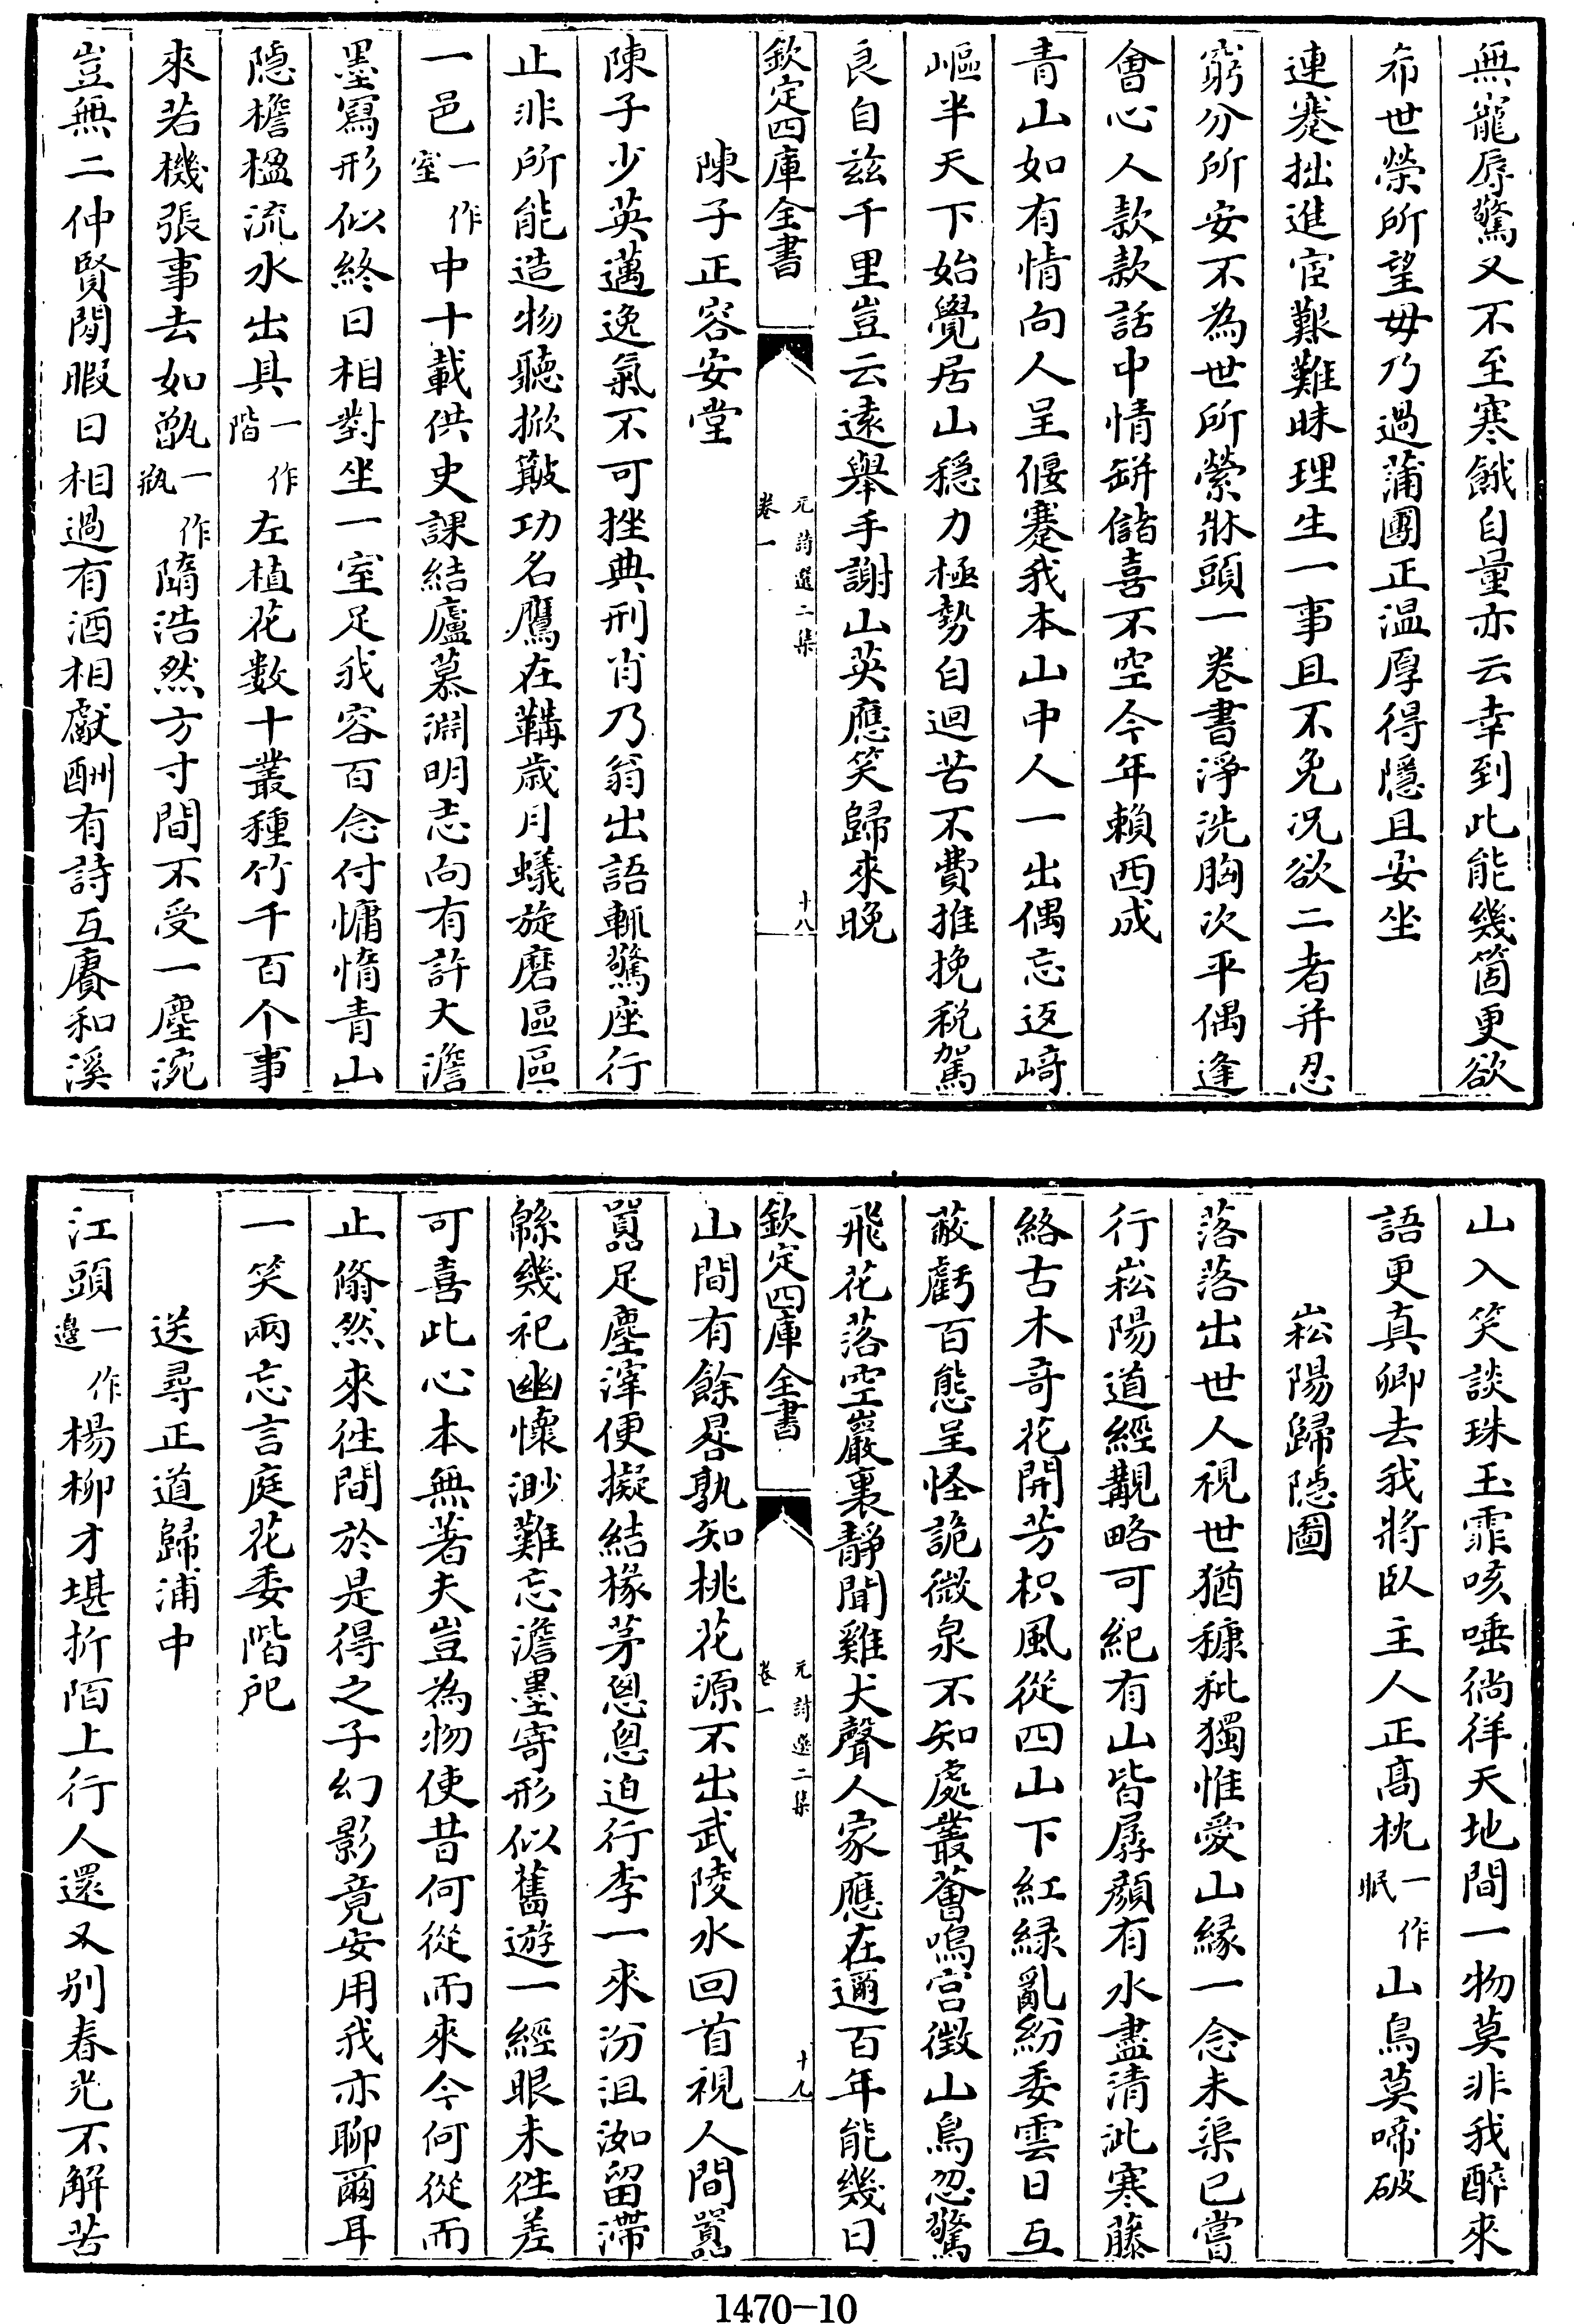 無寵辱驚又不至寒餓自量亦云幸到此能幾箇更欲
布世榮所望毋乃過蒲團正温厚得隱且安坐
連蹇拙進宦艱難昧理生一事且不免况欲二者并忍
窮分所安不為世所縈牀頭一卷書淨洗胸次平偶逢
會心人款款話中情缾儲喜不空今年賴西成
青山如有情向人呈偃蹇我本山中人一出偶忘返﨑
嶇半天下始覺居山穏力極勢自迴苦不費推挽税駕
良自兹千里豈云遠舉手謝山英應笑歸來晚
欽定四庫全書
元詩選二集
卷一
十八
陳子正容安堂
陳子少英邁逸氣不可挫典刑肖乃翁出語輒驚座行
止非所能造物聽掀簸功名鷹在鞲歲月蟻旋磨區區
一邑一作室中十載供史課結廬慕淵明志向有許大澹
墨寫形似終日相對坐一室足我容百念付慵惰青山
隠檐楹流水出具一作階左植花數十叢種竹千百个事
來若機張事去如甑一作瓶隋浩然方寸間不受一塵涴
豈無二仲賢閒暇日相過有酒相獻酬有詩互賡和溪
山入笑談珠玉霏咳唾徜徉天地間一物莫非我醉來
語更真卿去我將臥主人正髙枕一作眠山鳥莫啼破
崧陽歸隠圖
落落出世人視世猶穅秕獨惟愛山縁一念未渠已嘗
行崧陽道經覯略可紀有山皆孱顔有水盡清泚寒藤
絡古木奇花開芳枳風從四山下紅緑亂紛委雲日互
蔽虧百態呈怪詭微泉不知處叢薈鳴宫徴山鳥忽驚
飛花落空巖裏靜聞雞犬聲人家應在邇百年能幾日
欽定四庫全書
元詩選二集
卷一
十九
山間有餘晷孰知桃花源不出武陵水回首視人間囂
囂足塵滓便擬結椽茅悤悤迫行李一來汾沮洳留滯
緜幾祀幽懷渺難忘澹墨寄形似舊遊一經眼未徃差
可喜此心本無著夫豈為物使昔何從而來今何從而
止翛然來徃間於是得之子幻影竟安用我亦聊爾耳
一笑兩忘言庭花委階戺
送尋正道歸浦中
江頭一作邉楊柳才堪折陌上行人還又别春光不解苦
1470-10